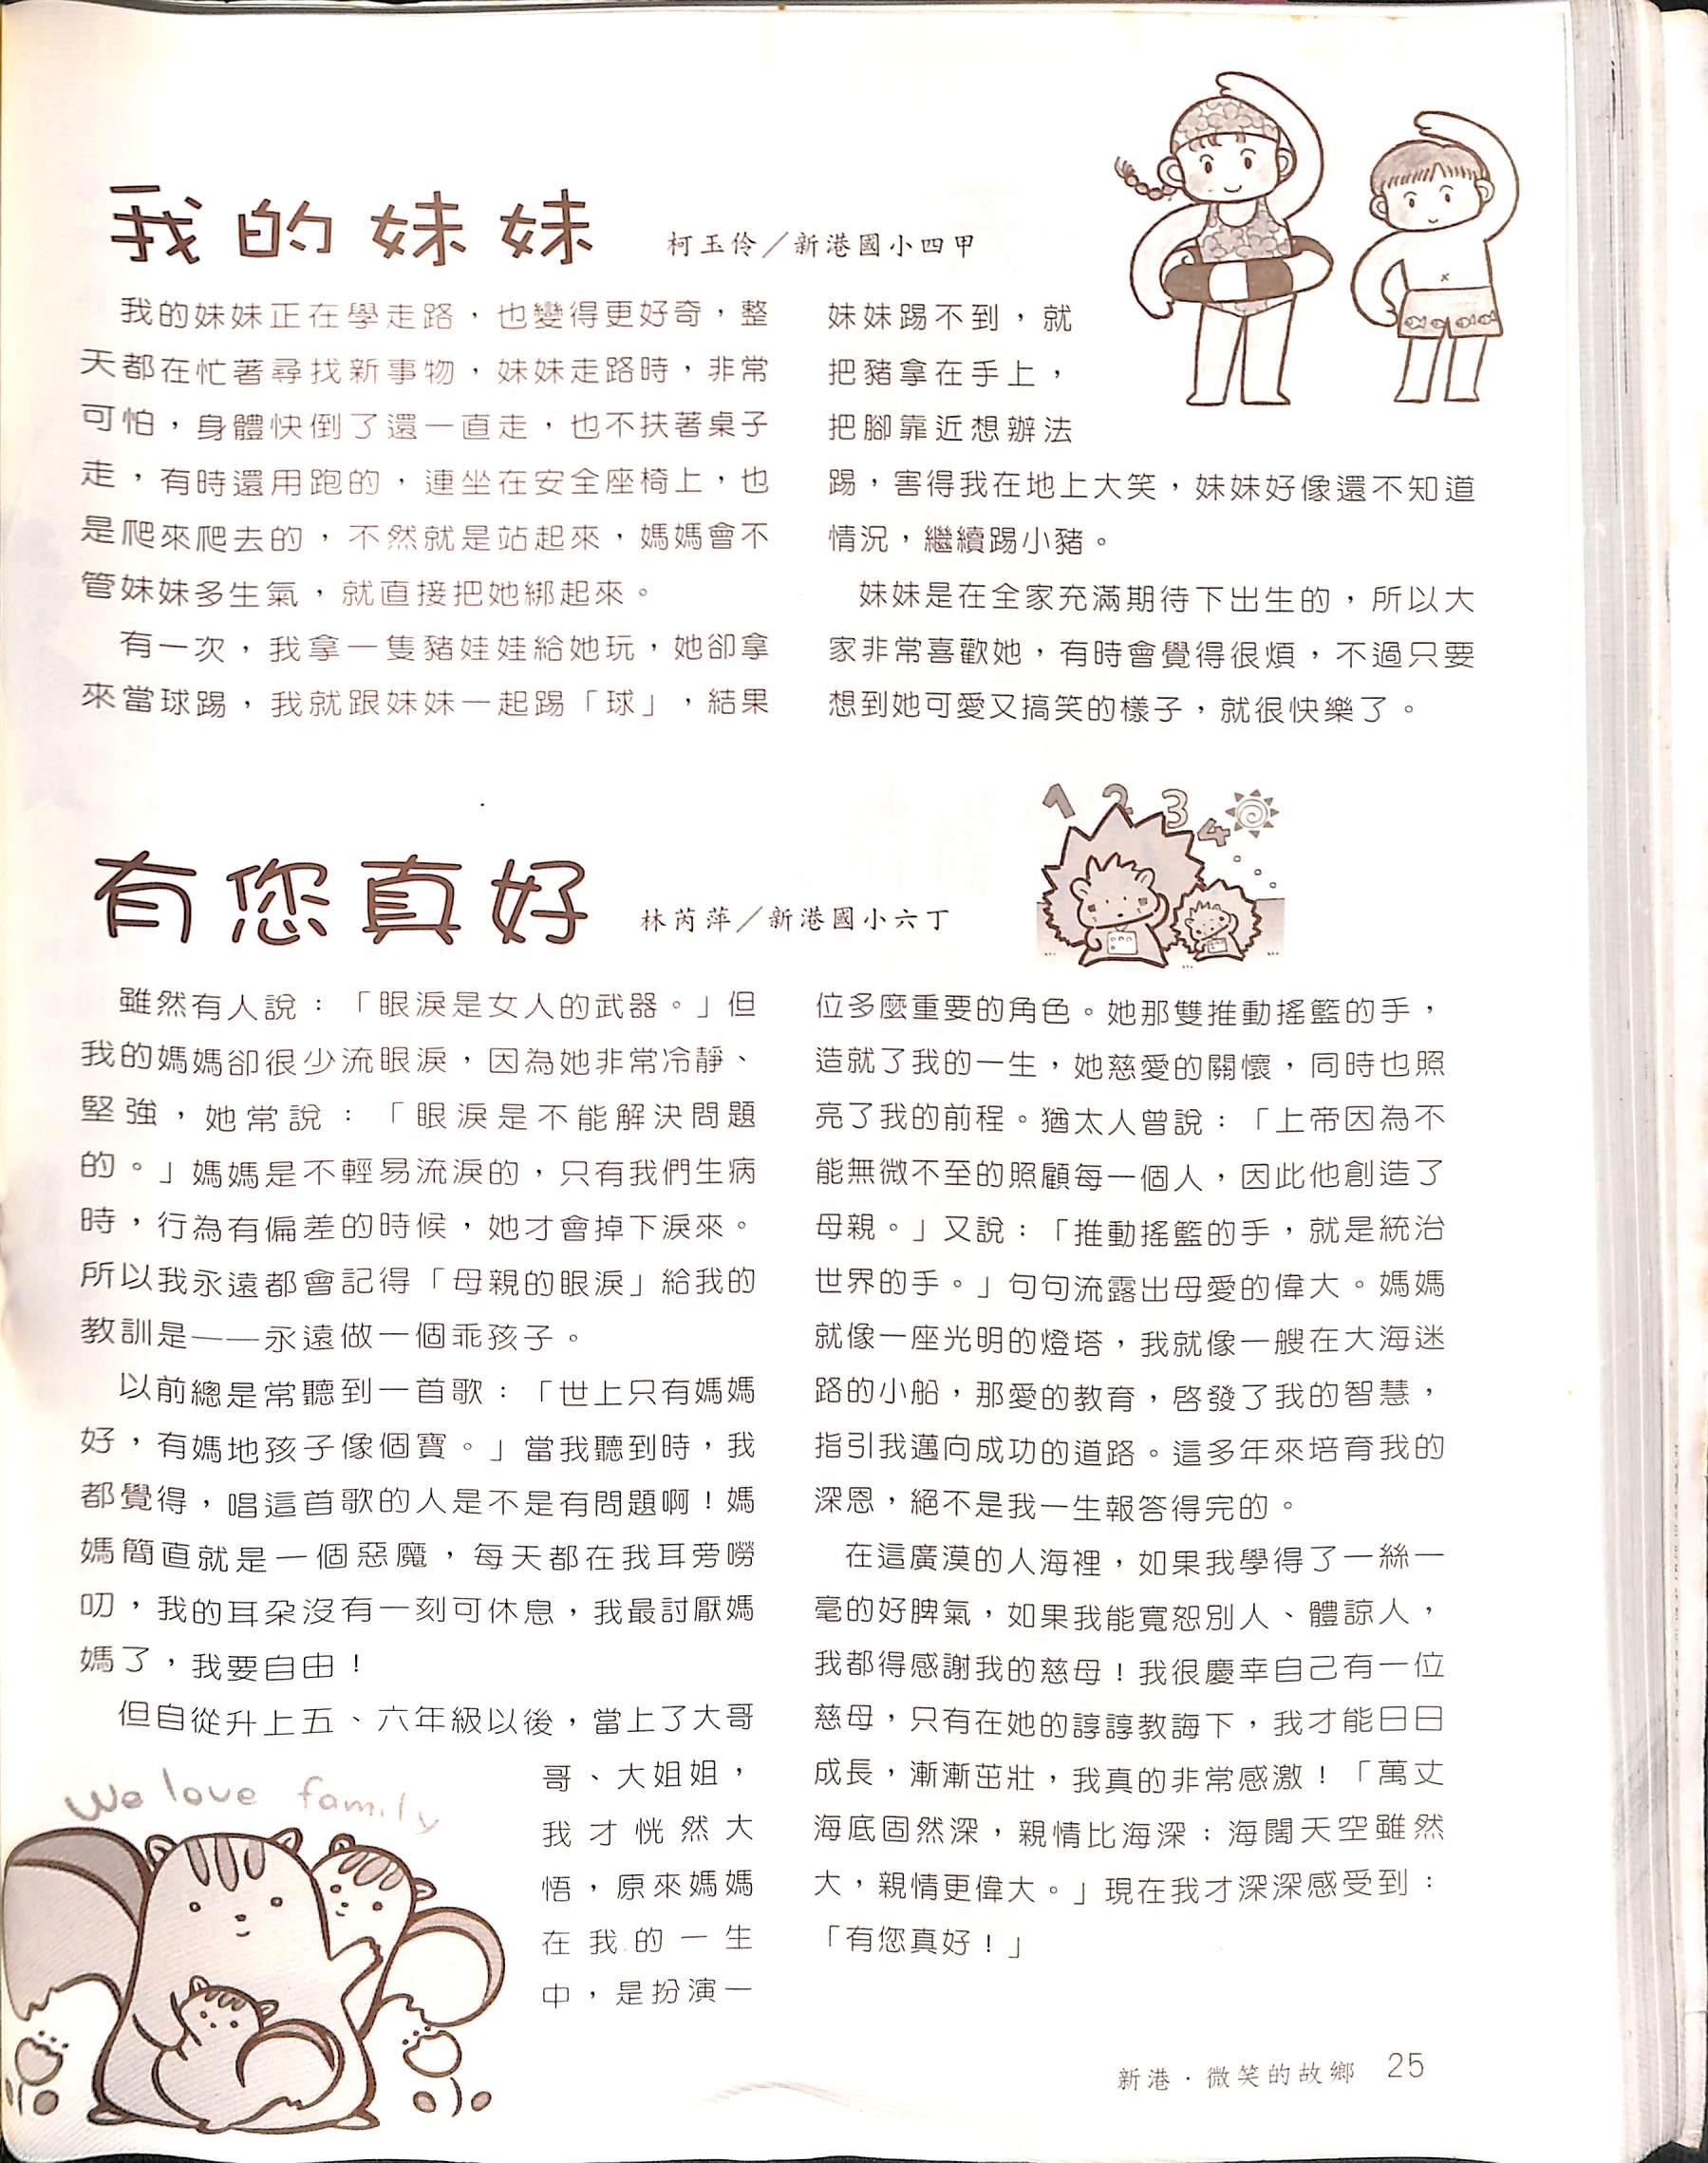 我的妹妹
柯玉伶／新港國小四甲
我的妹妹正在學走路，也變得更好奇，整
天都在忙著尋找新事物，妹妹走路時，非常
可怕，身體快倒了還一直走，也不扶著桌子
走，有時還用跑的，連坐在安全座椅上，也
是爬來爬去的，不然就是站起來，媽媽會不
管妹妹多生氣，就直接把她綁起來。
有一次，我拿一隻豬娃娃給她玩，她卻拿
來當球踢，我就跟妹妹一起踢「球」，結果
妹妹踢不到，就
把豬拿在手上，
把腳靠近想辦法
踢，害得我在地上大笑，妹妹好像還不知道
情況，繼續踢小豬。
妹妹是在全家充滿期待下出生的，所以大
家非常喜歡她，有時會覺得很煩，不過只要
想到她可愛又搞笑的樣子，就很快樂了。
1 2 3 4
有您真好
林芮萍／新港國小六丁
雖然有人說：「眼淚是女人的武器。」但
我的媽媽卻很少流眼淚，因為她非常冷靜、
堅強，她常說：「眼淚是不能解決問題
的。」媽媽是不輕易流淚的，只有我們生病
時，行為有偏差的時候，她才會掉下淚來。
所以我永遠都會記得「母親的眼淚」給我的
教訓是——永遠做一個乖孩子。
以前總是常聽到一首歌：「世上只有媽媽
好，有媽地孩子像個寶。」當我聽到時，我
都覺得，唱這首歌的人是不是有問題啊！媽
媽簡直就是一個惡魔，每天都在我耳旁嘮
叨，我的耳朵沒有一刻可休息，我最討厭媽
媽了，我要自由！
但自從升上五、六年級以後，當上了大哥
哥、大姐姐，
我才恍然大
悟，原來媽媽
在我的一生
中，是扮演一
We love family
位多麼重要的角色。她那雙推動搖籃的手，
造就了我的一生，她慈愛的關懷，同時也照
亮了我的前程。猶太人曾說：「上帝因為不
能無微不至的照顧每一個人，因此他創造了
母親。」又說：「推動搖籃的手，就是統治
世界的手。」句句流露出母愛的偉大。媽媽
就像一座光明的燈塔，我就像一艘在大海迷
路的小船，那愛的教育，啓發了我的智慧，
指引我邁向成功的道路。這多年來培育我的
深恩，絕不是我一生報答得完的。
在這廣漠的人海裡，如果我學得了一絲一
毫的好脾氣，如果我能寬恕別人、體諒人，
我都得感謝我的慈母！我很慶幸自己有一位
慈母，只有在她的諄諄教誨下，我才能日日
成長，漸漸茁壯，我真的非常感激！「萬丈
海底固然深，親情比海深；海闊天空雖然
大，親情更偉大。」現在我才深深感受到：
「有您真好！」
新港·微笑的故鄉 25